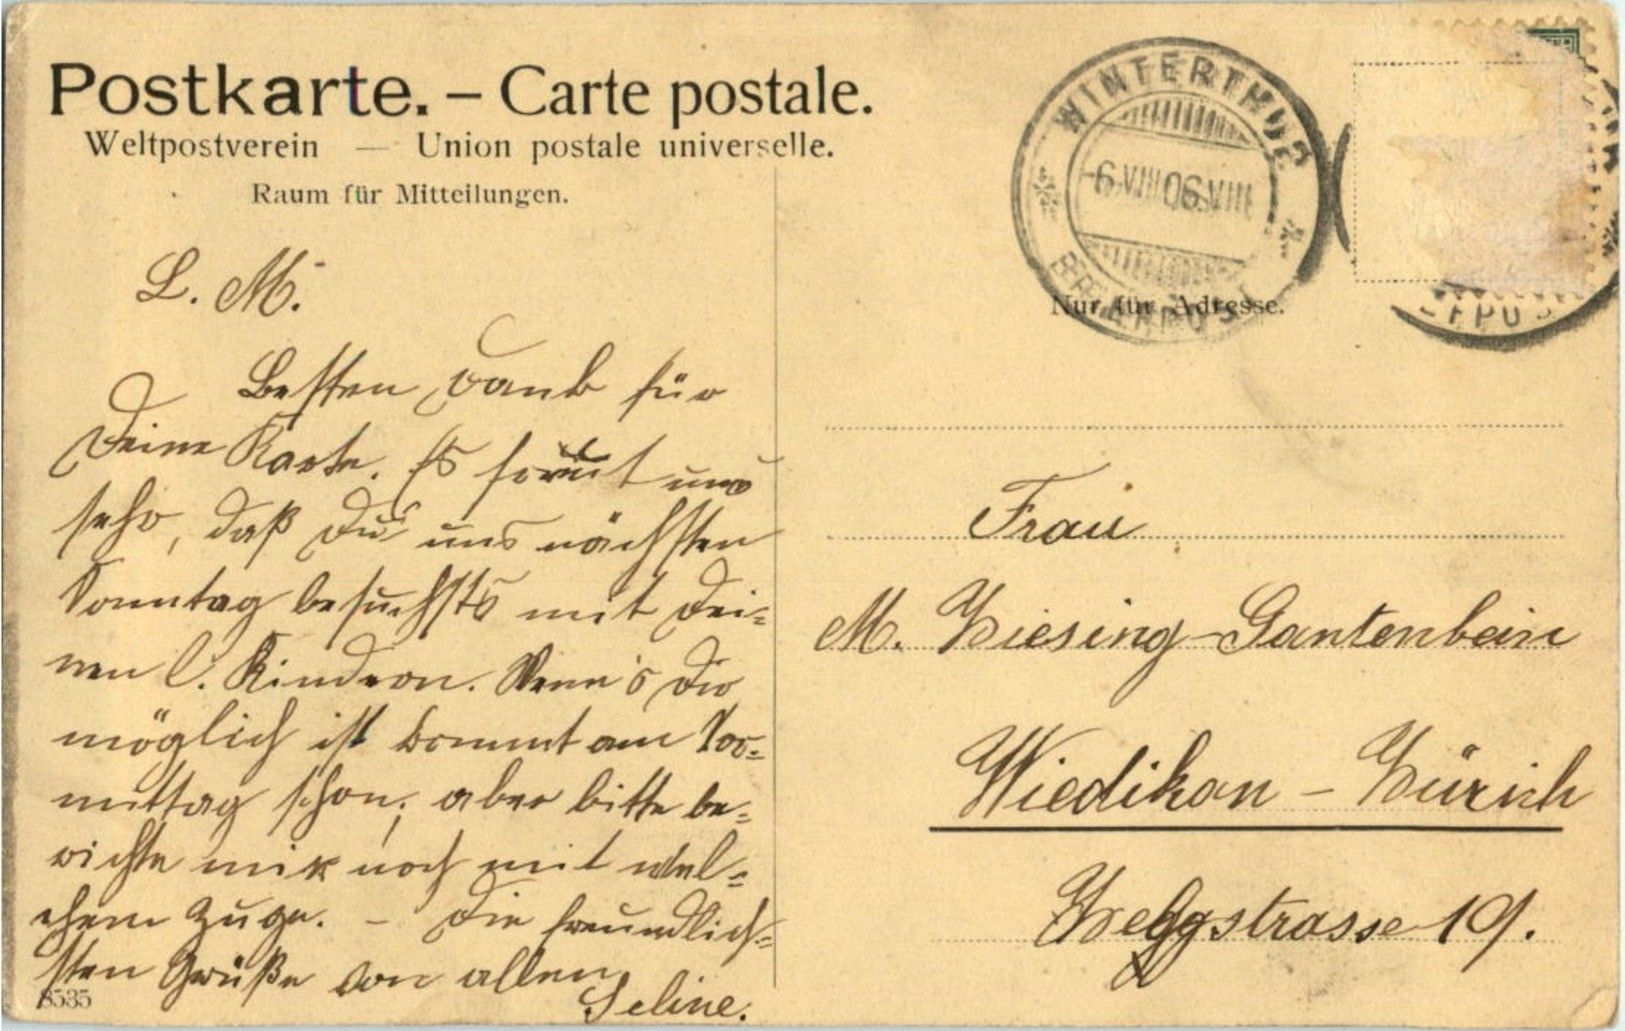 Postkarte. – Carte postale.
Weltpostverein — Union postale universelle.
Raum für Mitteilungen.
WINTERTHUR
-6.VIII.06.VIII
BRIEFPOST
Nur für Adresse.
L. M.
Besten Dank für
Deine Karte. Es freut uns
sehr, daß Du uns nächsten
Sonntag besuchst mit Dei=
nen l. Kindern. Wenn's Dir
möglich ist kommt am Vor=
mittag schon; aber bitte be=
richte mir noch mit wel=
chem Zuge. – Die freundlich=
sten Grüße von allen
Seline.
8535
Frau
M. Giesing-Gantenbein
Wiedikon – Zürich
Zelgstrasse 19.